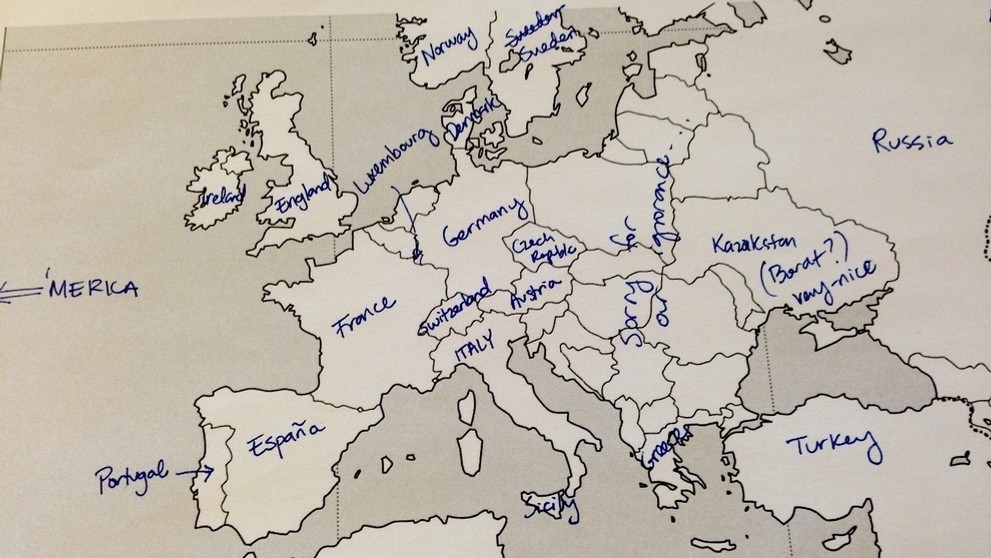 Norway
Sweden
Sweden
Denmark
Luxembourg
Ireland
England
Russia
Germany
Czech
Republic
Kazakstan
(Borat?)
very-nice
'MERICA
France
Switzerland
Austria
ITALY
Sorry
for
our
ignorance.
España
Portugal
Greece
Turkey
Sicily